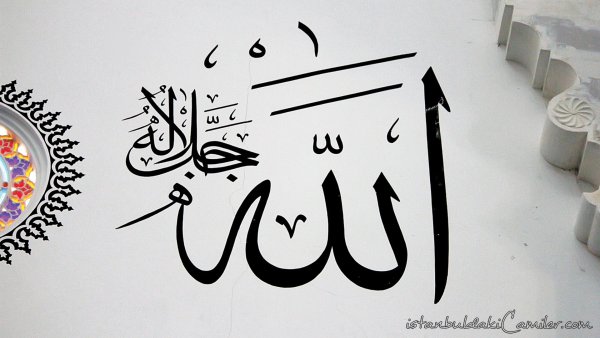 الله جل جلاله
istanbuldakiCamiler.com